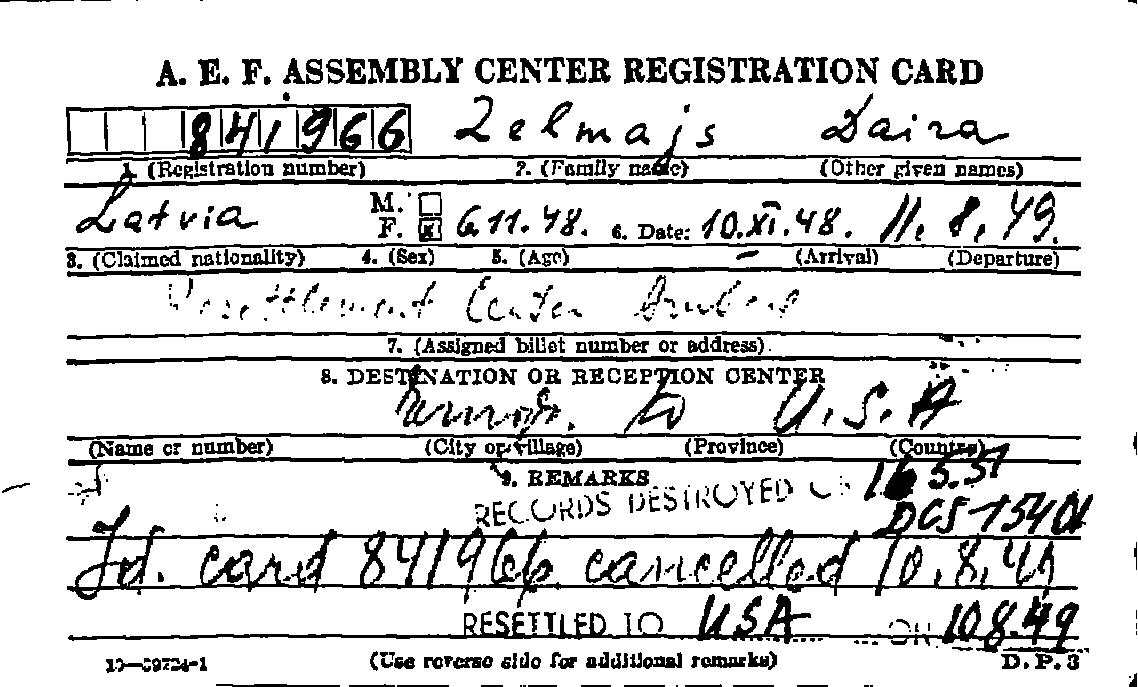 A. E. F. ASSEMBLY CENTER REGISTRATION CARD
841966 Zelmajs Daira
1. (Registration number) 2. (Family name) (Other given names)
Latvia M. F. x 6.11.48. 6. Date: 10.XI.48. 11.8.49.
3. (Claimed nationality) 4. (Sex) 5. (Age) (Arrival) (Departure)
Resettlement Center
7. (Assigned billet number or address).
8. DESTINATION OR RECEPTION CENTER
to U.S.A
(Name or number) (City or village) (Province) (Country)
9. REMARKS
RECORDS DESTROYED
DCS-15401
Id. card 841966 cancelled 10.8.49
RESETTLED TO USA ON 10.8.49
(Use reverse side for additional remarks) D.P.3